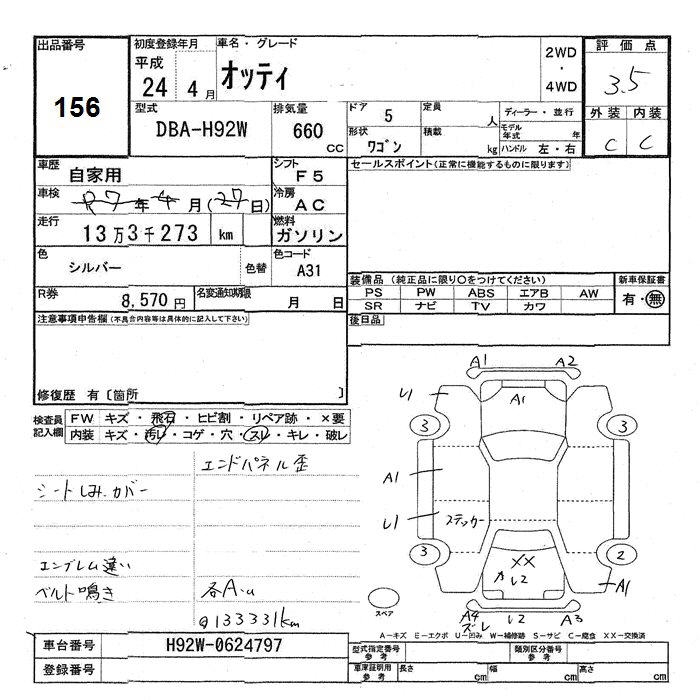 出品番号
156
初度登録年月
平成
24 4月
車名・グレード
オッティ
2WD
・
4WD
評価点
3.5
外装 内装
C C
型式
DBA-H92W
排気量
660 CC
ドア 5
定員 人
ディーラー・並行
モデル年式 年
形状 ワゴン
積載 kg
ハンドル 左・右
車歴 自家用
シフト F5
セールスポイント(正常に機能するものに限ります)
車検 R7年4月(27日)
冷房 AC
走行 13万3千273 km
燃料 ガソリン
色 シルバー 色替
色コード A31
R券 8,570円
名変通知期限 月 日
装備品 (純正品に限り〇をつけてください)
新車保証書
PS PW ABS エアB AW
有・無
SR ナビ TV カワ
後日品
注意事項申告欄(不具合内容等は具体的に記入して下さい)
修復歴 有〔箇所 〕
検査員記入欄
FW キズ・飛石・ヒビ割・リペア跡・×要
内装 キズ・汚レ・コゲ・穴・スレ・キレ・破レ
エンドパネル歪
シートしみ.カバー
エンブレム違い
ベルト鳴き
各A.u
q133331km
A1 A2
U1 A1
3 3
A1
U1 ステッカー
3 2
XX
U2
A1
スペア
A4 ズレ U2 A3
A-キズ E-エクボ U-凹み W-補修跡 S-サビ C-腐食 XX-交換済
車台番号 H92W-0624797
登録番号
型式指定番号 参考
類別区分番号 参考
車庫証明用 参考
長さ cm 幅 cm 高さ cm